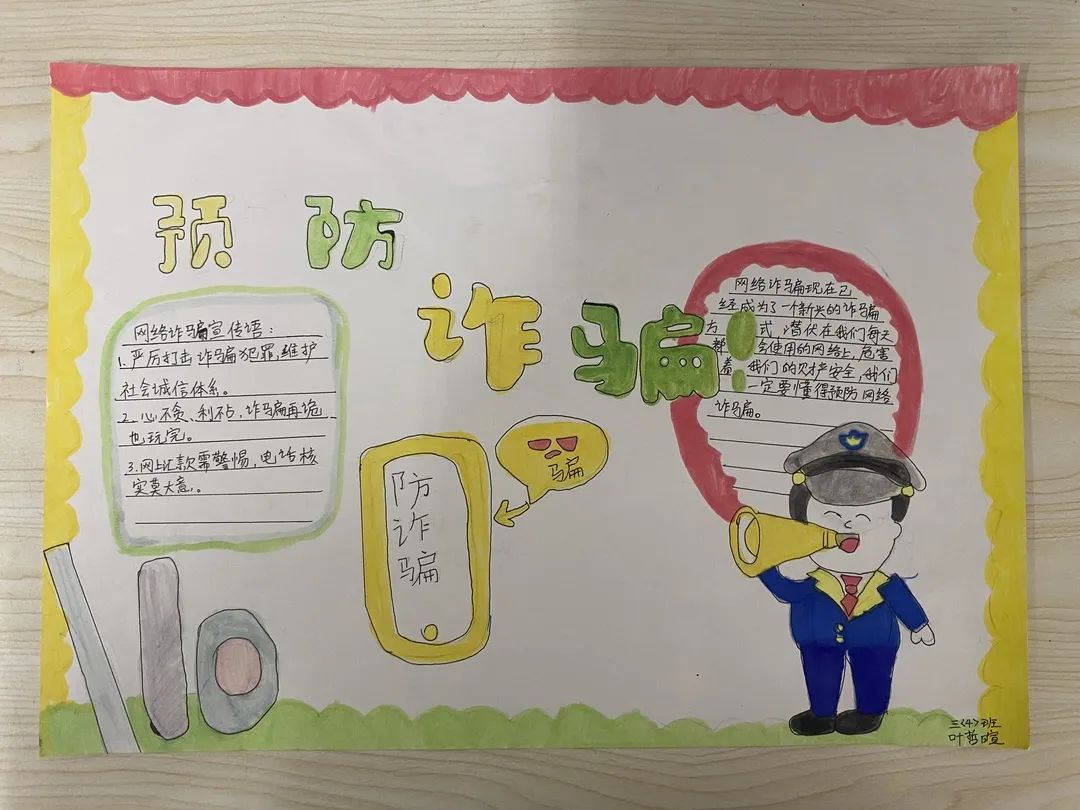 预防
诈骗!
网络诈骗宣传语：
1.严厉打击诈骗犯罪,维护
社会诚信体系。
2.心不贪、利不占,诈骗再诡
也玩完。
3.网上汇款需警惕,电话核
实莫大意。
防
诈
骗
骗
网络诈骗现在已
经成为了一个新兴的诈骗
方式,潜伏在我们每天
都会使用的网络上,危害
着我们的财产安全,我们
一定要懂得预防网络
诈骗。
三〈4〉班
叶哲暄